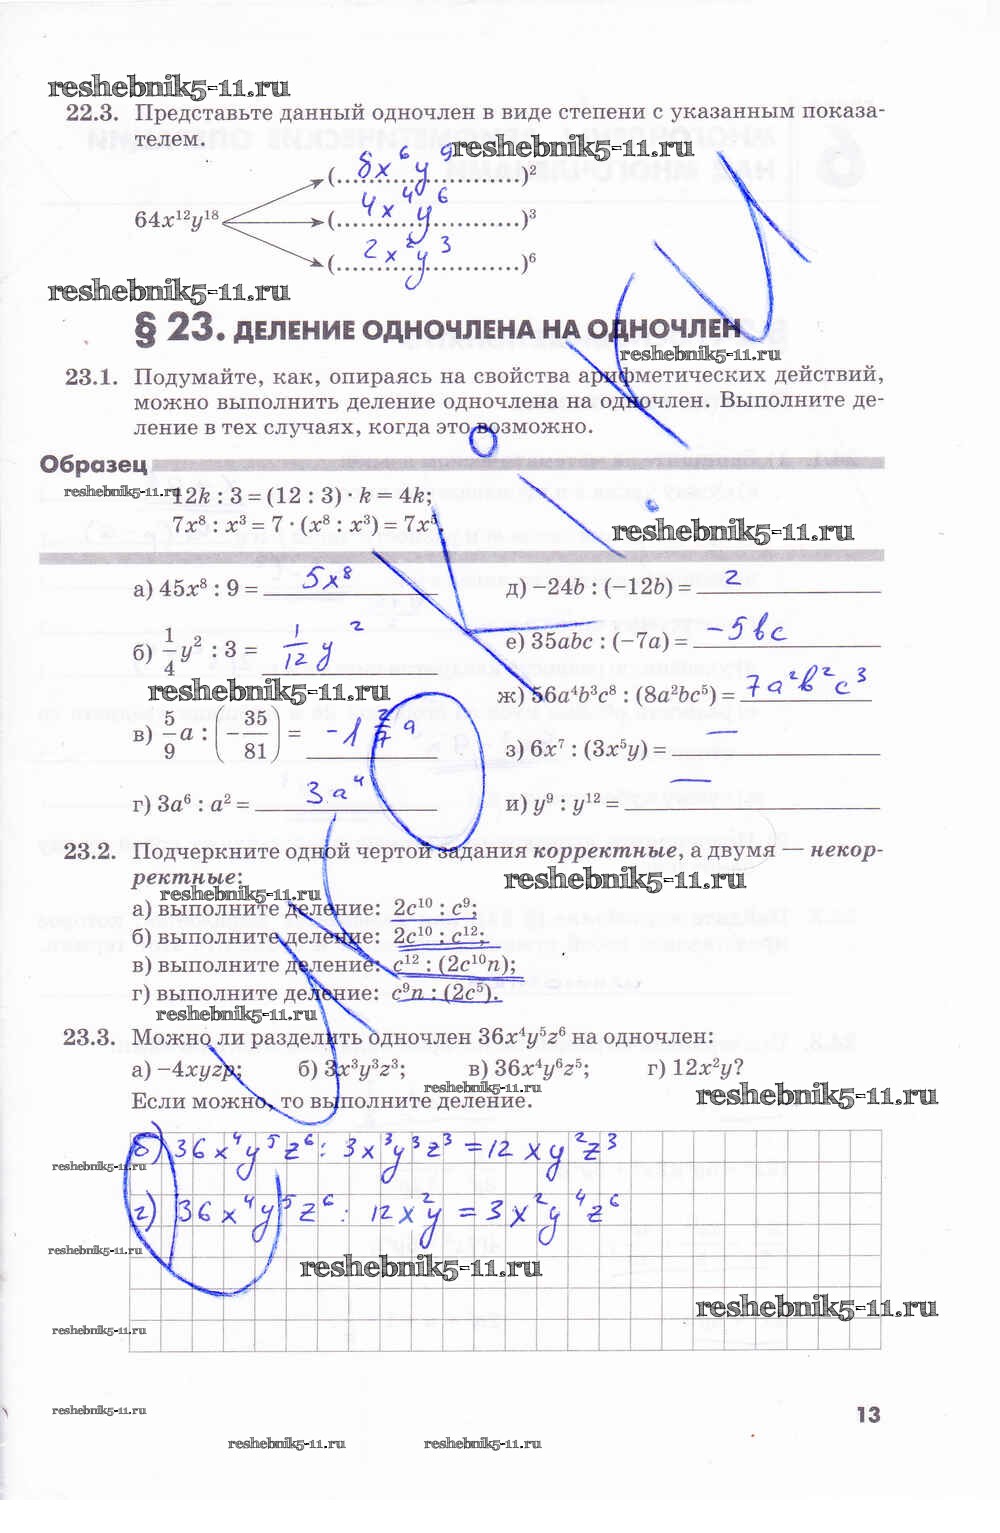 reshebnik5-11.ru
22.3. Представьте данный одночлен в виде степени с указанным показа-
телем.
reshebnik5-11.ru
(8x⁶y⁹)²
64x¹²y¹⁸ (4x⁴y⁶)³
(2x²y³)⁶
reshebnik5-11.ru
§ 23. ДЕЛЕНИЕ ОДНОЧЛЕНА НА ОДНОЧЛЕН
reshebnik5-11.ru
23.1. Подумайте, как, опираясь на свойства арифметических действий,
можно выполнить деление одночлена на одночлен. Выполните де-
ление в тех случаях, когда это возможно.
Образец
reshebnik5-11.ru 12k : 3 = (12 : 3) · k = 4k;
7x⁸ : x³ = 7 · (x⁸ : x³) = 7x⁵.
reshebnik5-11.ru
а) 45x⁸ : 9 = 5x⁸ д) −24b : (−12b) = 2
б) 1/4 y² : 3 = 1/12 y² е) 35abc : (−7a) = −5bc
reshebnik5-11.ru ж) 56a⁴b³c⁸ : (8a²bc⁵) = 7a²b²c³
в) 5/9 a : (−35/81) = −1 2/7 a з) 6x⁷ : (3x⁵y) = —
г) 3a⁶ : a² = 3a⁴ и) y⁹ : y¹² = —
23.2. Подчеркните одной чертой задания корректные, а двумя — некор-
ректные:
reshebnik5-11.ru
reshebnik5-11.ru
а) выполните деление: 2c¹⁰ : c⁹;
б) выполните деление: 2c¹⁰ : c¹²;
в) выполните деление: c¹² : (2c¹⁰n);
г) выполните деление: c⁹n : (2c⁵).
reshebnik5-11.ru
23.3. Можно ли разделить одночлен 36x⁴y⁵z⁶ на одночлен:
а) −4xyzp; б) 3x³y³z³; в) 36x⁴y⁶z⁵; г) 12x²y?
reshebnik5-11.ru
reshebnik5-11.ru
Если можно, то выполните деление.
б) 36x⁴y⁵z⁶ : 3x³y³z³ = 12xy²z³
reshebnik5-11.ru
г) 36x⁴y⁵z⁶ : 12x²y = 3x²y⁴z⁶
reshebnik5-11.ru
reshebnik5-11.ru
reshebnik5-11.ru
reshebnik5-11.ru
reshebnik5-11.ru
13
reshebnik5-11.ru reshebnik5-11.ru